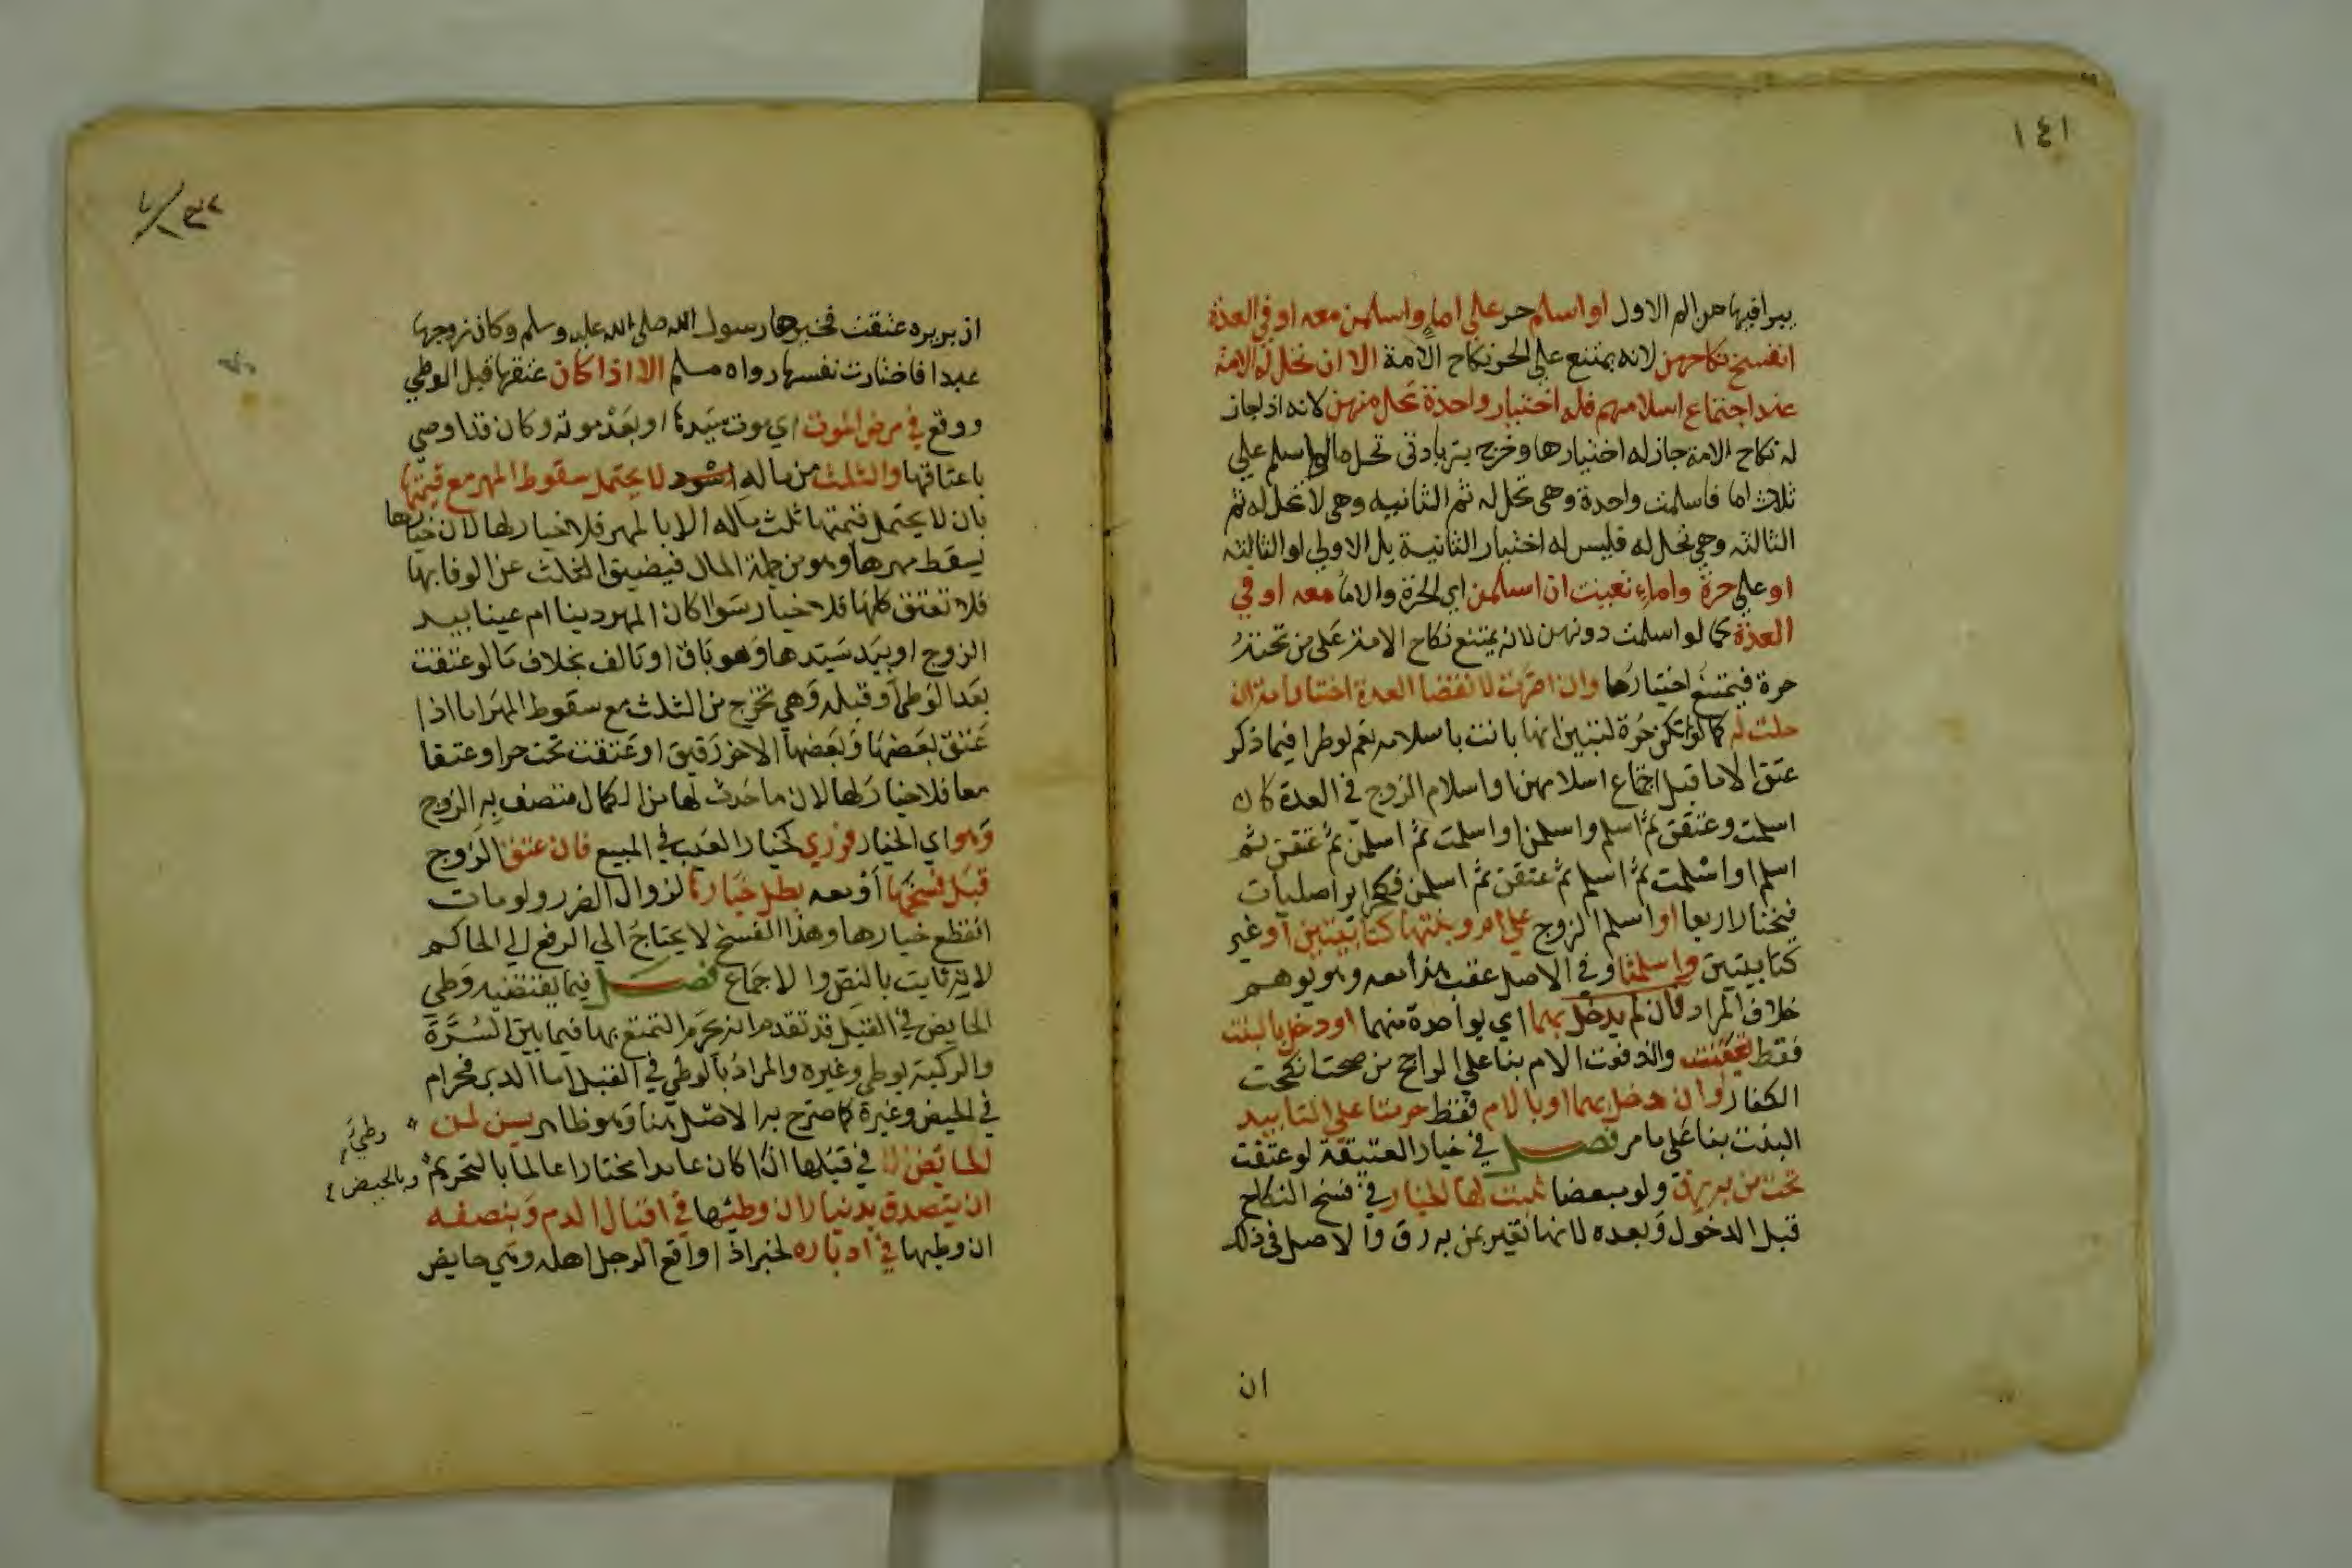 ١٤١
بيرافيها من الم الاول او اسلم حر علي اماء واسلمن معه او في العدة
انفسخ نكاحهن لانه يمتنع علي الحر نكاح الامة الا ان تحل له الامة
عند اجتماع اسلامهم فله اختيار واحدة تحل منهن لانه اذا جاز
له نكاح الامة جاز له اختيارها وخرج بزيادتي تحل ما لو اسلم علي
ثلاث اما فاسلمت واحدة وهي تحل له ثم الثانيه وهي لا تحل له ثم
الثالثه وهي تحل له فليس له اختيار الثانية بل الاولي او الثالثه
او علي حرة واماء تعينت ان اسلمن اي الحرة والاما معه او في
العدة كما لو اسلمت دونهن لانه يمتنع نكاح الامة علي من تحته
حرة فيمتنع اختيارها وان اصرت لانقضا العدة اختار امة ان
حلت له كما لو لم تكن حرة لتبين انها بانت باسلامه نعم لو طرا فيما ذكر
عتق الاما قبل اجتماع اسلامهن او اسلام الزوج في العدة كان
اسلمت وعتقن ثم اسلم واسلمن او اسلمت ثم اسلمن ثم عتقن ثم
اسلم او اسلمت ثم اسلم ثم عتقن ثم اسلمن فكحراير اصليات
فيختار اربعا او اسلم الزوج علي ام وبنتها كتابيتين او غير
كتابيتين واسلمتا وفي الاصل عقب هذا معه وهو يوهم
خلاف المراد فان لم يدخل بهما اي بواحدة منهما او دخل بالبنت
فقط تعينت واندفعت الام بنا علي الراجح من صحت انكحت
الكفار وان دخل بهما او بالام فقط حرمتا علي التابيد
البنت بنا علي ما مر فصل في خيار العتيقة لو عتقت
تحت من به رق ولو مبعضا ثبت لها الخيار في فسخ النكاح
قبل الدخول وبعده لانها تعير بمن به رق والاصل في ذلك
ان
ان بريره عتقت فخيرها رسول الله صلي الله عليه وسلم وكان زوجها
عبدا فاختارت نفسها رواه مسلم الا اذا كان عتقها قبل الوطي
ووقع في مرض الموت اي موت سيدها او بعد موته وكان قد اوصي
باعتاقها والثلث من ماله لا يحتمل سقوط المهر مع قيمتها
بان لا يحتمل قيمتها ثلث ماله الا بالمهر فلا خيار لها لان خيارها
يسقط مهرها وهو من جملة المال فيضيق الثلث عن الوفا بها
فلا تعتق كلها فلا خيار سوا كان المهر دينا ام عينا بيد
الزوج او بيد سيدها وهو باق او تالف بخلاف ما لو عتقت
بعد الوطي او قبله وهي تخرج من الثلث مع سقوط المهر اما اذا
عتق بعضها وبعضها الاخر رقيق او عتقت تحت حر او عتقا
معا فلا خيار لها لان ما حدث لها من الكمال متصف به الزوج
وهو اي الخيار فوري كخيار العيب في المبيع فان عتق الزوج
قبل فسخها او معه بطل خيارها لزوال الضرر ولو مات
انقطع خيارها وهذا الفسخ لا يحتاج الي الرفع الي الحاكم
لانه ثابت بالنص والاجماع فصل فيما يقتضيه وطي
الحايض في القبل قد تقدم انه يحرم التمتع بها فيما بين السرة
والركبة بوطي وغيره والمراد بالوطي في القبل اما الدبر فحرام
في الحيض وغيرة كما صرح به الاصل هنا وهو ظاهر يسن لمن
وطي
الحايض في قبلها اذا كان عامدا مختارا عالما بالتحريم
وبالحيض
ان يتصدق بدينار ان وطئها في اقبال الدم وبنصفه
ان وطيها في ادباره لخبر اذا واقع الرجل اهله وهي حايض